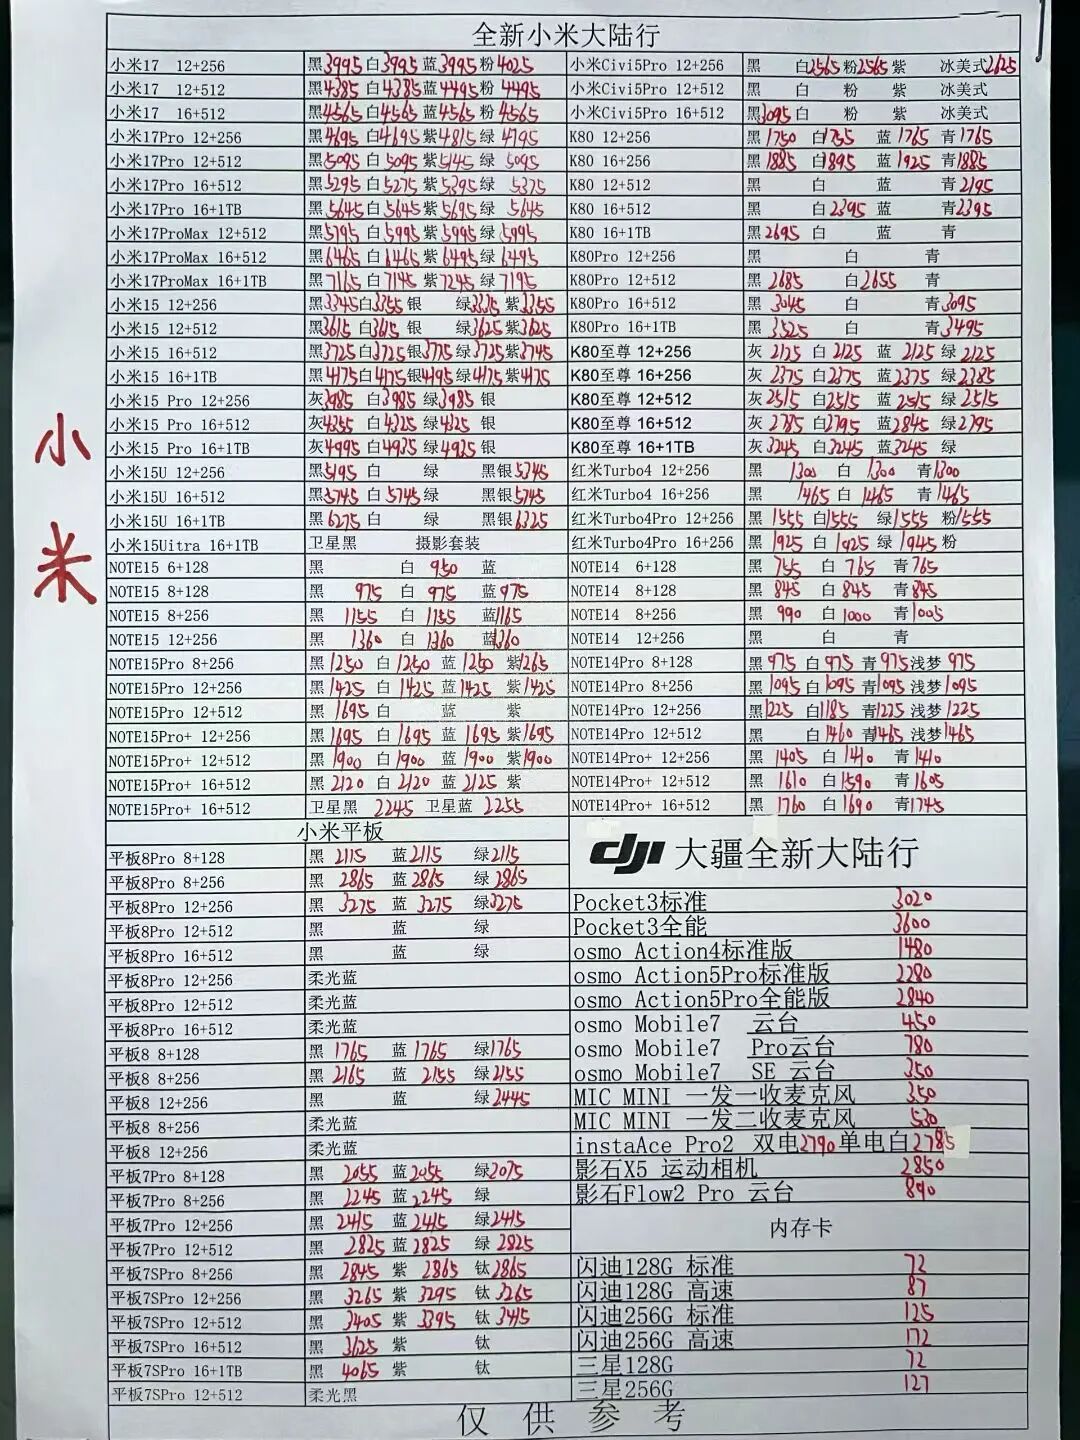 全新小米大陆行
小米
小米17 12+256 黑3995白3995蓝3995粉4025
小米17 12+512 黑4385白4385蓝4495粉4495
小米17 16+512 黑4565白4565蓝4565粉4565
小米17Pro 12+256 黑4695白4695紫4815绿4795
小米17Pro 12+512 黑5095白5095紫5145绿5095
小米17Pro 16+512 黑5295白5275紫5395绿5375
小米17Pro 16+1TB 黑5645白5645紫5695绿5645
小米17ProMax 12+512 黑5795白5995紫5995绿5995
小米17ProMax 16+512 黑6465白6465紫6495绿6495
小米17ProMax 16+1TB 黑7165白7145紫7245绿7195
小米15 12+256 黑3345白3355银 绿3335紫3355
小米15 12+512 黑3615白3615银 绿3625紫3625
小米15 16+512 黑3725白3725银3775绿3725紫3745
小米15 16+1TB 黑4175白4175银4195绿4175紫4175
小米15 Pro 12+256 灰3985白3985绿3985银
小米15 Pro 16+512 灰4355白4325绿4325银
小米15 Pro 16+1TB 灰4995白4935绿4935银
小米15U 12+256 黑5195白 绿 黑银5345
小米15U 16+512 黑5745白5745绿 黑银5745
小米15U 16+1TB 黑6275白 绿 黑银6325
小米15Uitra 16+1TB 卫星黑 摄影套装
NOTE15 6+128 黑 白 950 蓝
NOTE15 8+128 黑 975 白 975 蓝975
NOTE15 8+256 黑 1155 白 1155 蓝1165
NOTE15 12+256 黑 1360 白 1360 蓝1360
NOTE15Pro 8+256 黑1250 白1250 蓝1250 紫1265
NOTE15Pro 12+256 黑1425 白1425 蓝1425 紫1425
NOTE15Pro 12+512 黑1695白 蓝 紫
NOTE15Pro+ 12+256 黑1695 白1695 蓝1695紫1695
NOTE15Pro+ 12+512 黑1900 白1900 蓝1900 紫1900
NOTE15Pro+ 16+512 黑2120 白2120 蓝2125 紫
NOTE15Pro+ 16+512 卫星黑 2245 卫星蓝 2255
小米Civi5Pro 12+256 黑 白2565粉2565紫 冰美式2625
小米Civi5Pro 12+512 黑 白 粉 紫 冰美式
小米Civi5Pro 16+512 黑3095白 粉 紫 冰美式
K80 12+256 黑1750 白1755 蓝1765 青1765
K80 16+256 黑1885 白1895 蓝1925 青1885
K80 12+512 黑 白 蓝 青2195
K80 16+512 黑 白2395 蓝 青2395
K80 16+1TB 黑2695 白 蓝 青
K80Pro 12+256 黑 白 青
K80Pro 12+512 黑 2685 白2655 青
K80Pro 16+512 黑 3045 白 青3095
K80Pro 16+1TB 黑 3525 白 青3495
K80至尊 12+256 灰 2125 白2125 蓝 2125绿2125
K80至尊 16+256 灰 2375 白2375 蓝2375 绿2385
K80至尊 12+512 灰2515 白2515 蓝2515 绿2515
K80至尊 16+512 灰2785白2795 蓝2845绿2795
K80至尊 16+1TB 灰3245白3245 蓝3245 绿
红米Turbo4 12+256 黑 1300 白 1300 青1300
红米Turbo4 16+256 黑 1465 白 1465 青1465
红米Turbo4Pro 12+256 黑1555 白1555 绿1555 粉1555
红米Turbo4Pro 16+256 黑1925 白1925 绿1945 粉
NOTE14 6+128 黑 755 白 765 青765
NOTE14 8+128 黑 845 白 845 青845
NOTE14 8+256 黑 990 白 1000 青1005
NOTE14 12+256 黑 白 青
NOTE14Pro 8+128 黑975 白975 青975浅梦975
NOTE14Pro 8+256 黑1095白1095 青1095浅梦1095
NOTE14Pro 12+256 黑1225 白1185 青1225浅梦1225
NOTE14Pro 12+512 黑 白1460 青1465浅梦1465
NOTE14Pro+ 12+256 黑 1405 白1410 青1410
NOTE14Pro+ 12+512 黑 1610 白1590 青1605
NOTE14Pro+ 16+512 黑 1760 白1690 青1745
小米平板
平板8Pro 8+128 黑 2115 蓝2115 绿2115
平板8Pro 8+256 黑 2865 蓝2865 绿2865
平板8Pro 12+256 黑 3275 蓝 3275 绿3275
平板8Pro 12+512 黑 蓝 绿
平板8Pro 16+512 黑 蓝 绿
平板8Pro 12+256 柔光蓝
平板8Pro 12+512 柔光蓝
平板8Pro 16+512 柔光蓝
平板8 8+128 黑 1765 蓝1765 绿1765
平板8 8+256 黑 2165 蓝 2155 绿2155
平板8 12+256 黑 蓝 绿2445
平板8 8+256 柔光蓝
平板8 12+256 柔光蓝
平板7Pro 8+128 黑 2055 蓝2055 绿2075
平板7Pro 8+256 黑 2245 蓝2245 绿
平板7Pro 12+256 黑 2415 蓝2415 绿2415
平板7Pro 12+512 黑 2825 蓝2825 绿 2825
平板7SPro 8+256 黑 2845 紫 2865 钛2865
平板7SPro 12+256 黑 3265 紫 3295 钛3265
平板7SPro 12+512 黑 3405 紫 3395 钛3415
平板7SPro 16+512 黑 3625 紫 钛
平板7SPro 16+1TB 黑 4065 紫 钛
平板7SPro 12+512 柔光黑
dji 大疆全新大陆行
Pocket3标准 3020
Pocket3全能 3600
osmo Action4标准版 1480
osmo Action5Pro标准版 2280
osmo Action5Pro全能版 2840
osmo Mobile7 云台 450
osmo Mobile7 Pro云台 780
osmo Mobile7 SE 云台 350
MIC MINI 一发一收麦克风 350
MIC MINI 一发二收麦克风 530
instaAce Pro2 双电2790单电白2785
影石X5 运动相机 2850
影石Flow2 Pro 云台 890
内存卡
闪迪128G 标准 72
闪迪128G 高速 87
闪迪256G 标准 125
闪迪256G 高速 172
三星128G 72
三星256G 127
仅供参考